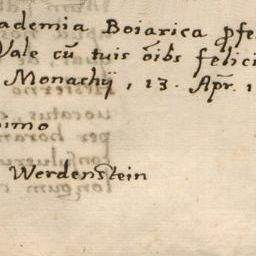 ademia Boiarica ꝓfe
Vale cū tuis oībs felici
Monachÿ, 13. Apr̄. 1
simo
Werdenstein